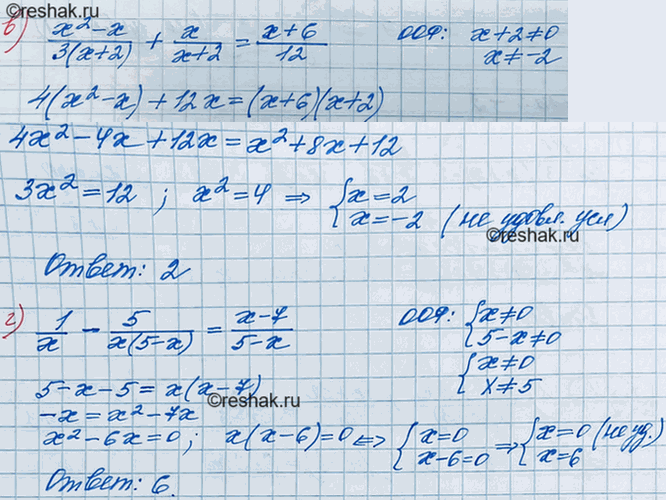 ©reshak.ru
в) (x²-x)/(3(x+2)) + x/(x+2) = (x+6)/12 ООФ: x+2≠0
x≠-2
4(x²-x)+12x=(x+6)(x+2)
4x²-4x+12x=x²+8x+12
3x²=12 ; x²=4 ⇒ { x=2
x=-2 (не удовл. усл)
©reshak.ru
Ответ: 2
г) 1/x - 5/(x(5-x)) = (x-7)/(5-x) ООФ: { x≠0
5-x≠0
{ x≠0
x≠5
5-x-5=x(x-7)
©reshak.ru
-x=x²-7x
x²-6x=0; x(x-6)=0 ⇔ { x=0
x-6=0 ⇒ { x=0 (не уд.)
x=6
Ответ: 6.
©reshak.ru